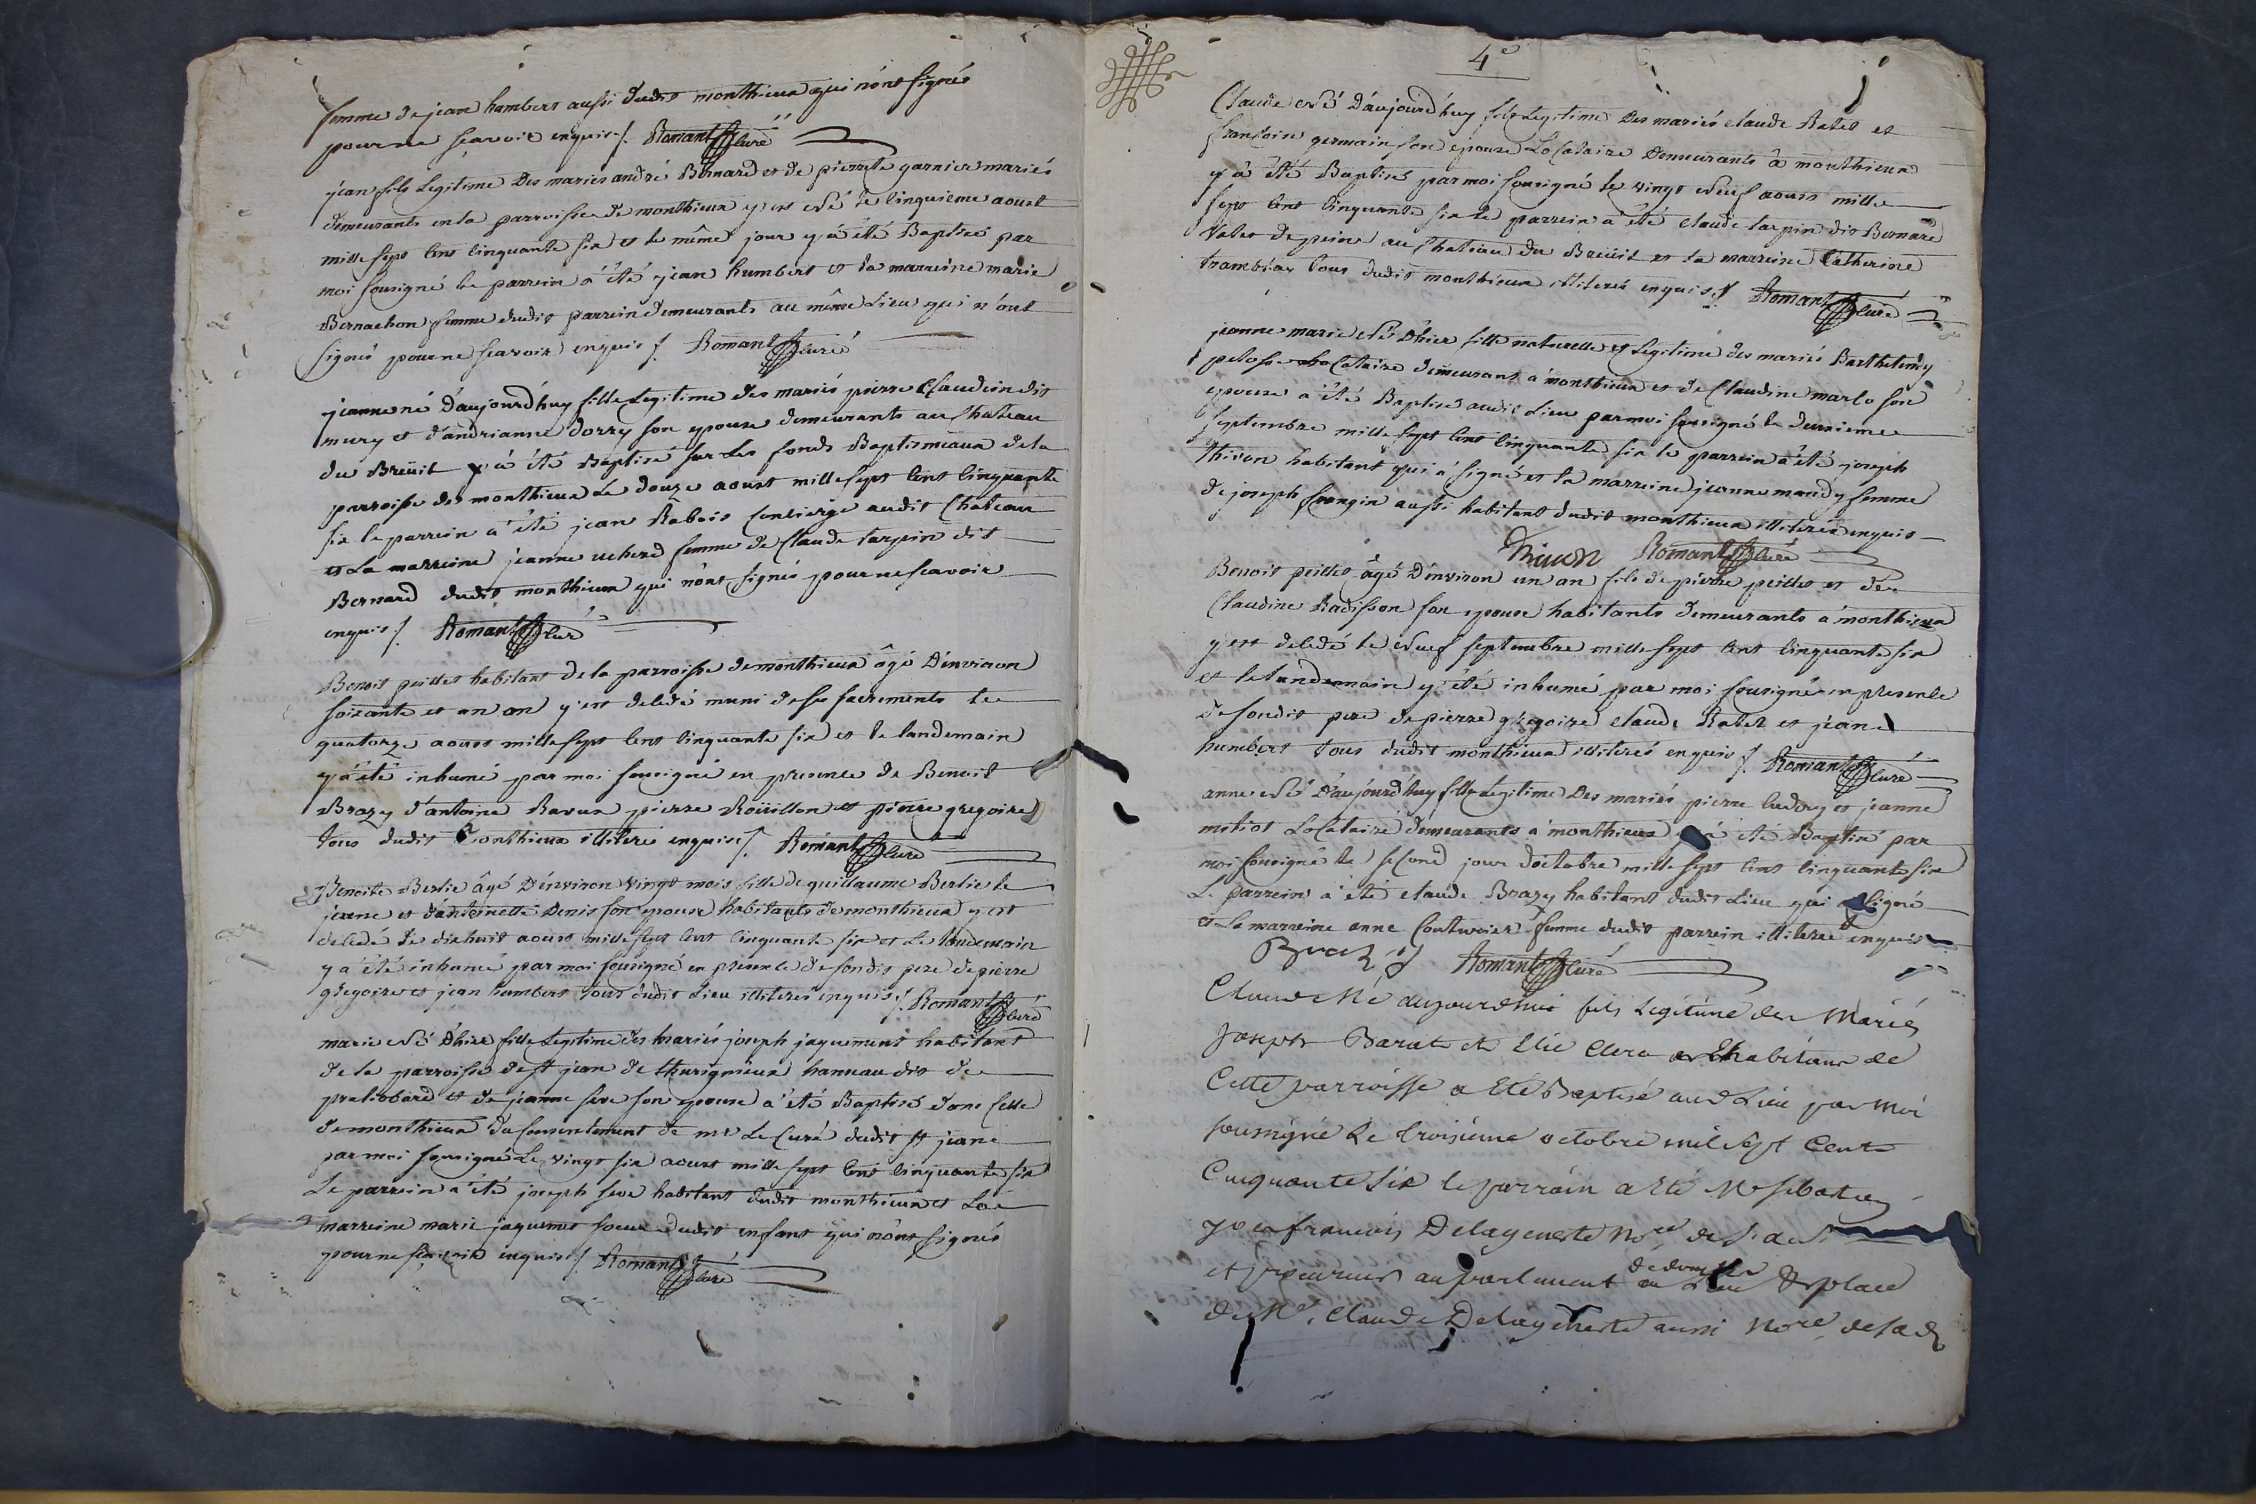 femme de jean humbert aussi dudit monthieux qui n'ont signés
pour ne sçavoir enquis /. Romant curé
jean fils Legitime Des mariés andré Bernard et de pierrete garnier mariés
demeurants en la parroisse de monthieux y est Né le Cinquieme aoust
mille sept Cens Cinquante six et le même jour y a été Baptisé par
moi sousigné le parrein a été jean humbert et la marreine marie
Bernachon femme dudit parrein demeurants au même Lieu qui n'ont
signés pour ne sçavoir enquis /. Romant curé
jeanne né D'aujourd'huy fille Legitime des mariés pierre Claudein dit
mury et d'andrianne dorzy son epouse demeurants au Chateau
du Breüil y a été Baptisé sur Les fonds Baptismeaux de la
parroisse de monthieux Le douze aoust mille sept Cens Cinquante
six le parrein a été jean Rabois Concierge audit Chateau
et La marreine jeanne uchard femme de Claude tarpin dit
Bernard dudit monthieux qui n'ont signés pour ne scavoir
enquis /. Romant Curé
Benoit peillet habitant de la parroisse de monthieux âgé D'environ
soixante et un an y est decedé muni de ses sacrements le
quatorze aoust mille sept Cens Cinquante six et le landemain
y a été inhumé par moi sousigné en presence de Benoit
Brazy d'antoine Ravux pierre Roüillon et pierre gregoire
tous dudit monthieux illiterés enquis /. Romant Curé
Benoite Berlie âgé D'environ vingt mois fille de guillaume Berlie le
jeune et d'antoinette Denis son epouse habitants de monthieux y est
decedé Le dixhuit aoust mille sept Cens Cinquante six et Le landemain
y a été inhumé par moi sousigné en presence de sondit pere de pierre
gregoire et jean humbert tous dudit Lieu illiterés enquis /. Romant Curé
marie Né D'hier fille Legitime des mariés joseph jaquemet habitant
de la parroisse de st jean de thurignieux hameau dit de
et de jeanne seve son epouse a été Baptisé dans Celle
de monthieux du Consentement de mr Le Curé dudit st jean
par moi sousigné Le vingt six aoust mille sept Cens Cinquante six
Le parrein a été joseph seve habitant dudit monthieux et La
marreine marie jaquemet soeur dudit enfant qui n'ont signés
pour ne sçavoir enquis /. Romant Curé
4e
Claude Né D'aujourd'huy fils Legitime Des mariés claude Ratet et
francoise germain son epouse Locataire Demeurants a monthieux
y a été Baptisé par moi sousigné le vingt Neuf aoust mille
sept Cens Cinquante six le parrein a été claude tarpin dit Bernard
Valet de peine au Chateau du Breüil et la marreine Catherine
tramblay tous dudit monthieux illiterés enquis /. Romant Curé
jeanne marie Né D'hier fille naturelle et Legitime des mariés Barthelemy
pelosse Locataire demeurant a monthieux et de Claudine marlo son
epouse a été Baptisé audit Lieu par moi sousigné le deuxieme
septembre mille sept Cens Cinquante six le parrein a été joseph
thivon habitant qui a signé et la marreine jeanne mandy femme
de joseph frongin aussi habitant dudit monthieux illiterée enquis
Thivon Romant Curé
Benoit peillet âgé D'environ un an fils de pierre peillet et de
Claudine Radisson son epouse habitants demeurants a monthieux
y est decedé le Neuf septembre mille sept Cens Cinquante six
et le landemain y été inhumé par moi sousigné en presence
de sondit pere de pierre gregoire claude Ratet et jean
humbert tous dudit monthieux illiterés enquis /. Romant Curé
anne Né D'aujourd'huy fille Legitime Des mariés pierre ludry et jeanne
mitiot Locataire demeurants a monthieux y a été Baptisé par
moi sousigné le second jour d'octobre mille sept Cens Cinquante six
Le parrein a été claude Brazy habitant dudit Lieu qui a signé
et La marreine anne Couturier femme dudit parrein illiterée enquis
Romant Curé
Claude Né aujourdhui fils Legitime des Mariés
Joseph Barat et Elie Clerc habitans de
Cette parroisse a Eté Baptisé audit Lieu par Moi
soussigné Le troisieme octobre mil sept Cent
Cinquante six le parrain a Eté Me sebastien
françois Delageneste Nore
et procureur au parlement de dombes au Lieu & place
de Me. Claude Delageneste aussi Nore